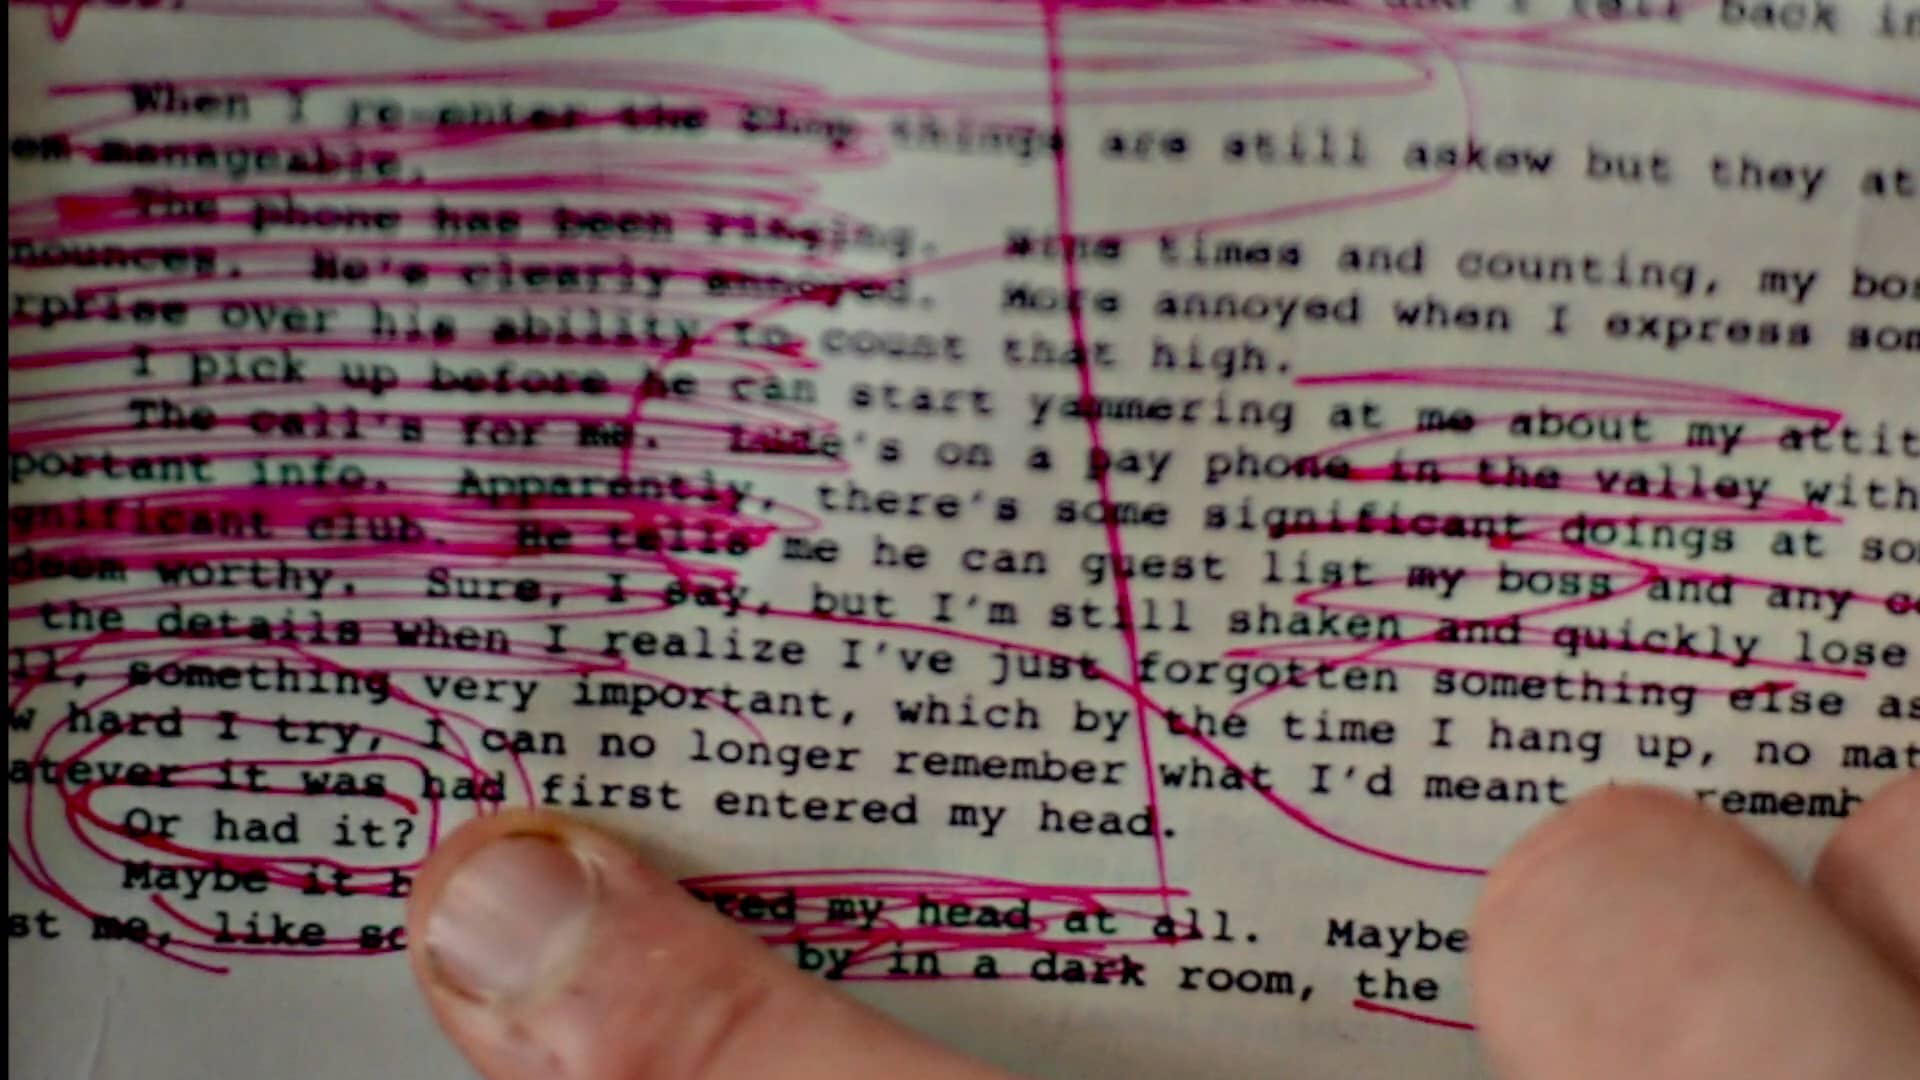 back in
When I re-enter the Shop things are still askew but they at
em manageable.
The phone has been ringing. Nine times and counting, my bos
nounces. He's clearly annoyed. More annoyed when I express som
rprise over his ability to count that high.
I pick up before he can start yammering at me about my attit
The call's for me. Lude's on a pay phone in the valley with
portant info. Apparently, there's some significant doings at so
gnificant club. He tells me he can guest list my boss and any co
deem worthy. Sure, I say, but I'm still shaken and quickly lose
the details when I realize I've just forgotten something else as
ll, something very important, which by the time I hang up, no mat
w hard I try, I can no longer remember what I'd meant rememb
atever it was had first entered my head.
Or had it?
Maybe it b ted my head at all. Maybe
st me, like so by in a dark room, the